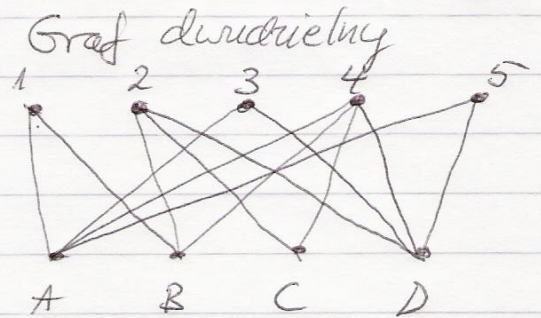 Graf dwudzielny
1 2 3 4 5
A B C D